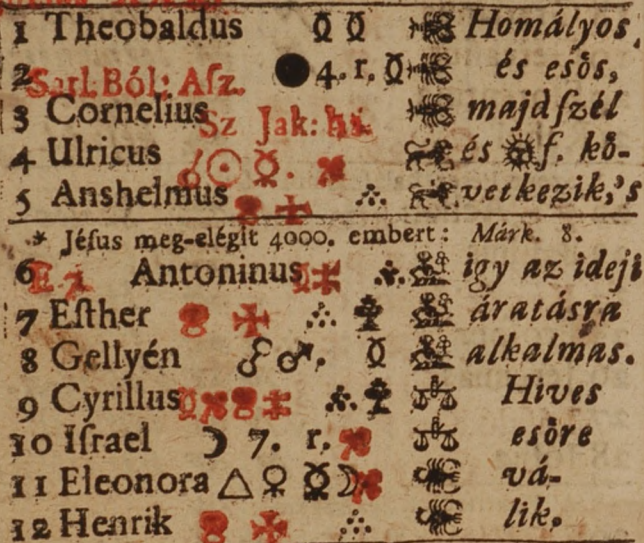 1 Theobaldus ☿ ☿ Homályos,
2 Sarl. Ból: Aſz. ● 4. r. ☿ és esös,
3 Cornelius Sz Jak: ha. majd ſzél
4 Ulricus ☌ ☉ ☿. és ☼ f. kö-
5 Anshelmus vetkezik,'s
* Jéſus meg-elégit 4000. embert: Márk. 8.
6 E 7 Antoninus igy az ideji
7 Eſther áratásra
8 Gellyén ☍ ♂. ☿ alkalmas.
9 Cyrillus Hives
10 Iſrael ☽ 7. r. esöre
11 Eleonora △ ♀ ☿ ☽ vá-
12 Henrik lik.